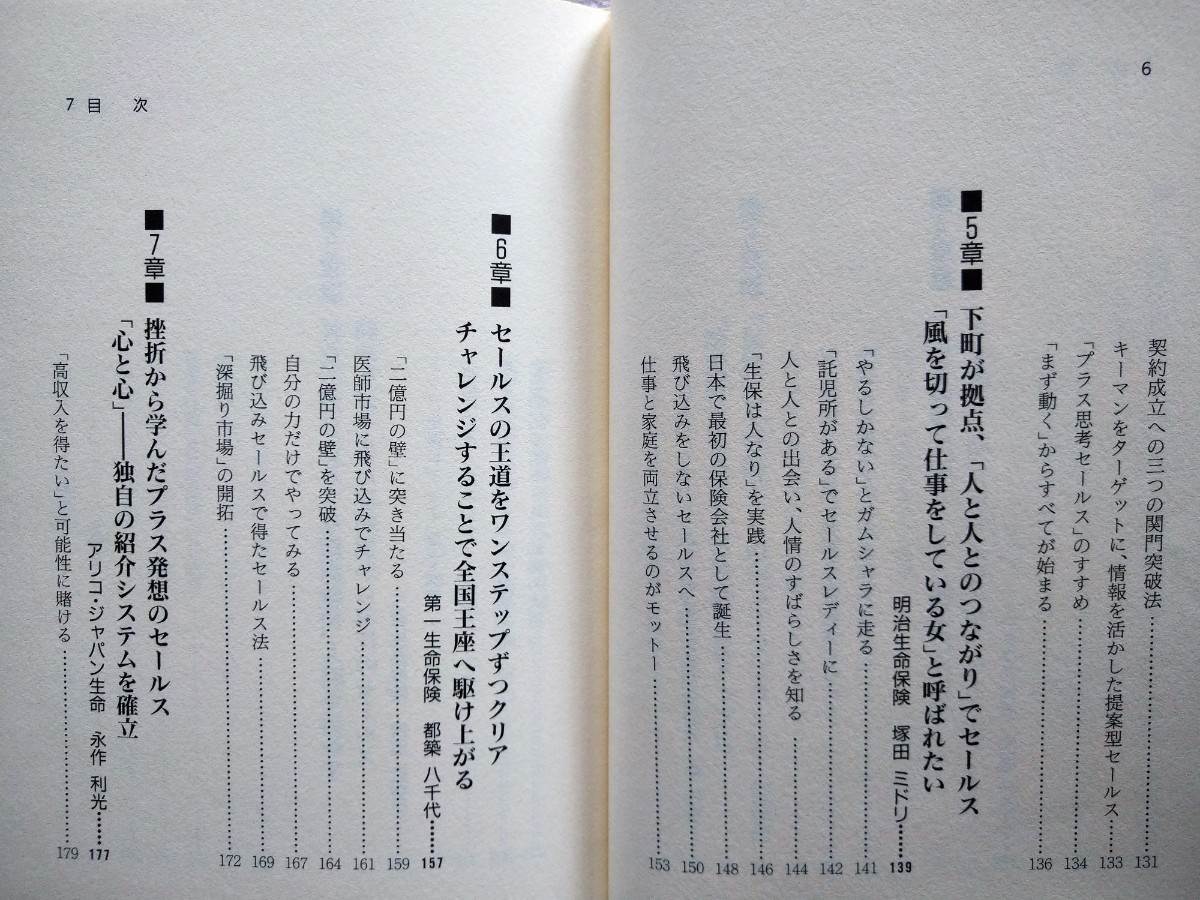 6
契約成立への三つの関門突破法……131
キーマンをターゲットに、情報を活かした提案型セールス……133
「プラス思考セールス」のすすめ……134
「まず動く」からすべてが始まる……136
■5章■ 下町が拠点、「人と人とのつながり」でセールス
「風を切って仕事をしている女」と呼ばれたい
明治生命保険 塚田 ミドリ……139
「やるしかない」とガムシャラに走る……141
「託児所がある」でセールスレディーに……142
人と人との出会い、人情のすばらしさを知る……144
「生保は人なり」を実践……146
日本で最初の保険会社として誕生……148
飛び込みをしないセールスへ……150
仕事と家庭を両立させるのがモットー……153
7 目 次
■6章■ セールスの王道をワンステップずつクリア
チャレンジすることで全国王座へ駆け上がる
第一生命保険 都築 八千代……157
「一億円の壁」に突き当たる……159
医師市場に飛び込みでチャレンジ……161
「二億円の壁」を突破……164
自分の力だけでやってみる……167
飛び込みセールスで得たセールス法……169
「深掘り市場」の開拓……172
■7章■ 挫折から学んだプラス発想のセールス
「心と心」――独自の紹介システムを確立
アリコ・ジャパン生命 永作 利光……177
「高収入を得たい」と可能性に賭ける……179